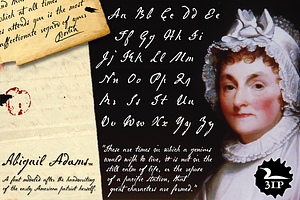 which at all times
as attends you is the most
affectionate regard of your
Portia
Aa Bb Cc Dd Ee
Ff Gg Hh Ii
Jj Kk Ll Mm
Nn Oo Pp Qq
Rr Ss Tt Uu
Vv Ww Xx Yy Zz
Abigail Adams™
A font modeled after the handwriting
of the early American patriot herself.
"These are times in which a genius
would wish to live, it is not in the
still calm of life, or the repose
of a pacific station, that
great characters are formed."
3IP